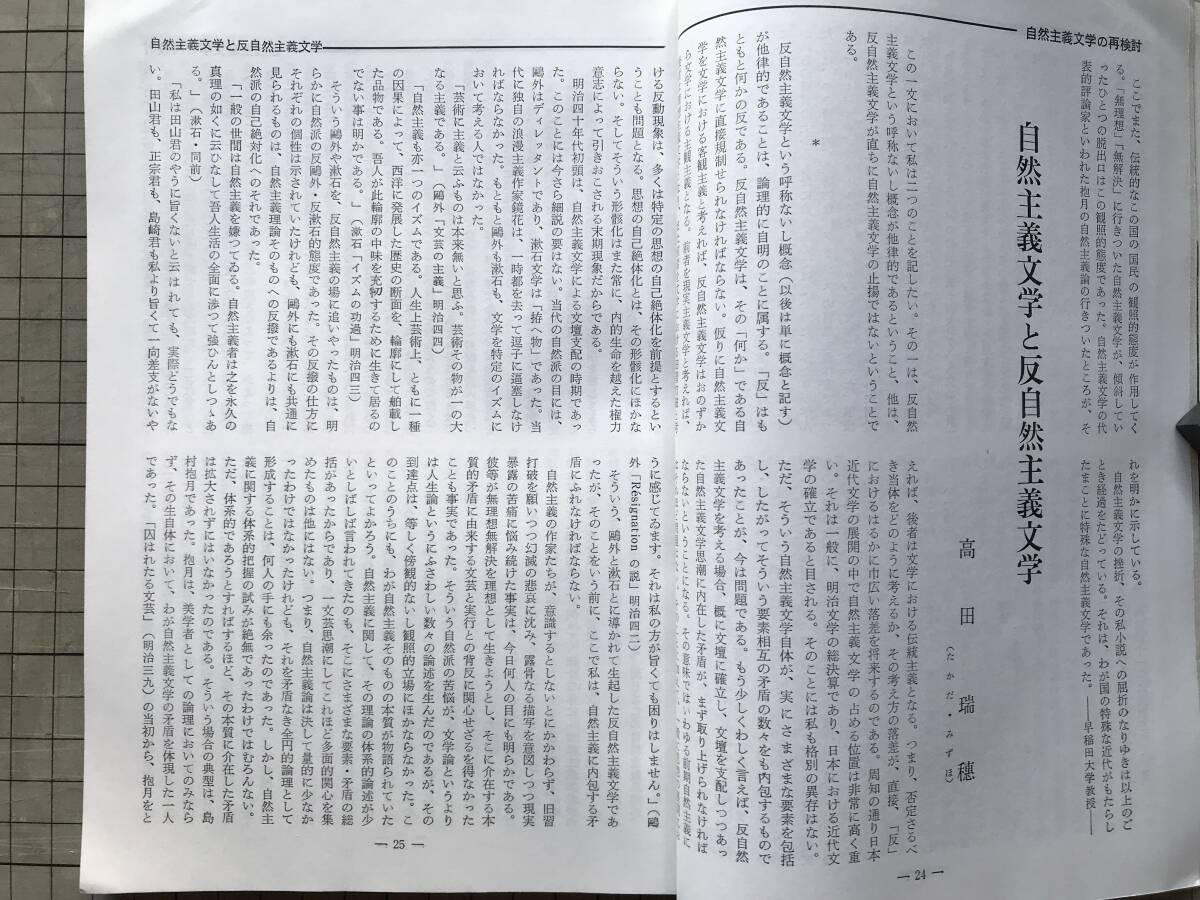 自然主義文学の再検討
ここでまた、伝統的なこの国の国民の観照的態度が作用してく
る。「無理想」「無解決」に行きついた自然主義文学が、傾斜してい
ったひとつの脱出口はこの観照的態度であった。自然主義文学の代
表的評論家といわれた抱月の自然主義論の行きついたところが、そ
れを明かに示している。
自然主義文学の挫折、その私小説への屈折のなりゆきは以上のご
とき経過をたどっている。それは、わが国の特殊な近代がもたらし
たまことに特殊な自然主義文学であった。――早稲田大学教授――
自然主義文学と反自然主義文学
高田瑞穂
(たかだ・みずほ)
この一文において私は二つのことを記したい。その一は、反自然
主義文学という呼称ないし概念が他律的であるということ、他は、
反自然主義文学が直ちに自然主義文学の止揚ではないということで
ある。
*
反自然主義文学という呼称ないし概念(以後は単に概念と記す)
が他律的であることは、論理的に自明のことに属する。「反」はも
ともと何かの反である。反自然主義文学は、その「何か」である自
然主義文学に直接規制せられなければならない。仮りに自然主義文
学を文学における客観主義と考えれば、反自然主義文学はおのずか
ら文学における主観主義となる。前者を現実主義文学と考えれば、
えれば、後者は文学における伝統主義となる。つまり、否定さるべ
き当体をどのように考えるか、その考え方の落差が、直接、「反」
におけるはるかに巾広い落差を将来するのである。周知の通り日本
近代文学の展開の中で自然主義文学の占める位置は非常に高く重
い。それは一般に、明治文学の総決算であり、日本における近代文
学の確立であると目される。そのことには私も格別の異存はない。
ただ、そういう自然主義文学自体が、実にさまざまな要素を包括
し、したがってそういう要素相互の矛盾の数々をも内包するもので
あったことが、今は問題である。もう少しくわしく言えば、反自然
主義文学を考える場合、概ね文壇に確立し、文壇を支配しつつあっ
た自然主義文学思潮に内在した矛盾が、まず取り上げられなければ
ならないということになる。その意味ではいわゆる前期自然主義に
― 24 ―
自然主義文学と反自然主義文学
ける反動現象は、多くは特定の思想の自己絶体化を前提とするとい
うことも問題となる。思想の自己絶体化とは、その形骸化にほかな
らない。そしてそういう形骸化はまた常に、内的生命を越えた権力
意志によって引きおこされる末期現象だからである。
明治四十年代初頭は、自然主義文学による文壇支配の時期であっ
た。このことには今さら細説の要はない。当代の自然派の目には、
鷗外はディレッタントであり、漱石文学は「拵へ物」であった。当
代に独自の浪漫主義作家鏡花は、一時都を去って逗子に逼塞しなけ
ればならなかった。もともと鷗外も漱石も、文学を特定のイズムに
おいて考える人ではなかった。
「芸術に主義と云ふものは本来無いと思ふ。芸術その物が一の大
なる主義である。」(鷗外「文芸の主義」明治四四)
「自然主義も亦一つのイズムである。人生上芸術上、ともに一種
の因果によって、西洋に発展した歴史の断面を、輪廓にして舶載し
た品物である。吾人が此輪廓の中味を充牣するために生きて居るの
でない事は明かである。」(漱石「イズムの功過」明治四三)
そういう鷗外や漱石を、反自然主義の場に追いやったものは、明
らかに自然派の反鷗外・反漱石的態度であった。その反撥の仕方に
それぞれの個性は示されていたけれども、鷗外にも漱石にも共通に
見られるものは、自然主義理論そのものへの反撥であるよりは、自
然派の自己絶対化へのそれであった。
「一般の世間は自然主義を嫌つてゐる。自然主義者は之を永久の
真理の如くに云ひなして吾人生活の全面に渉つて強ひんとしつゝあ
る。」(漱石・同前)
「私は田山君のやうに旨くないと云はれても、実際どうでもな
い。田山君も、正宗君も、島崎君も私より旨くて一向差支がないや
うに感じてゐます。それは私の方が旨くても困りはしません。」(鷗
外「Résignation の説」明治四二)
そういう、鷗外と漱石とに導かれて生起した反自然主義文学であ
ったが、そのことをいう前に、ここで私は、自然主義に内包する矛
盾にふれなければならない。
自然主義の作家たちが、意識するとしないとにかかわらず、旧習
打破を願いつつ幻滅の悲哀に沈み、露骨なる描写を意図しつつ現実
暴露の苦痛に悩み続けた事実は、今日何人の目にも明らかである。
彼等が無理想無解決を理想として生きようとし、そこに介在する本
質的矛盾に由来する文芸と実行との背反に関心せざるを得なかった
ことも事実であった。そういう自然派の苦悩が、文学論というより
は人生論というにふさわしい数々の論述を生んだのであるが、その
到達点は、等しく傍観的ないし観照的立場にほかならなかった。こ
のことのうちにも、わが自然主義そのものの本質が物語られていた
といってよかろう。自然主義に関して、その理論の体系的論述が少
いとしばしば言われてきたのも、そこにさまざまな要素・矛盾の総
括があったからであり、一文芸思潮にしてこれほど多面的関心を集
めたものは他にはない。つまり、自然主義論は決して量的に少なか
ったわけではなかったけれども、それを矛盾なき全円的論理として
形成することは、何人の手にも余ったのであった。しかし、自然主
義に関する体系的把握の試みが絶無であったわけではむろんない。
ただ、体系的であろうとすればするほど、その本質に介在した矛盾
は拡大されずにはいなかったのである。そういう場合の典型は、島
村抱月であった。抱月は、美学者としての論理においてのみなら
ず、その生自体において、わが自然主義文学の矛盾を体現した一人
であった。「囚はれたる文芸」(明治三九)の当初から、抱月をと
― 25 ―